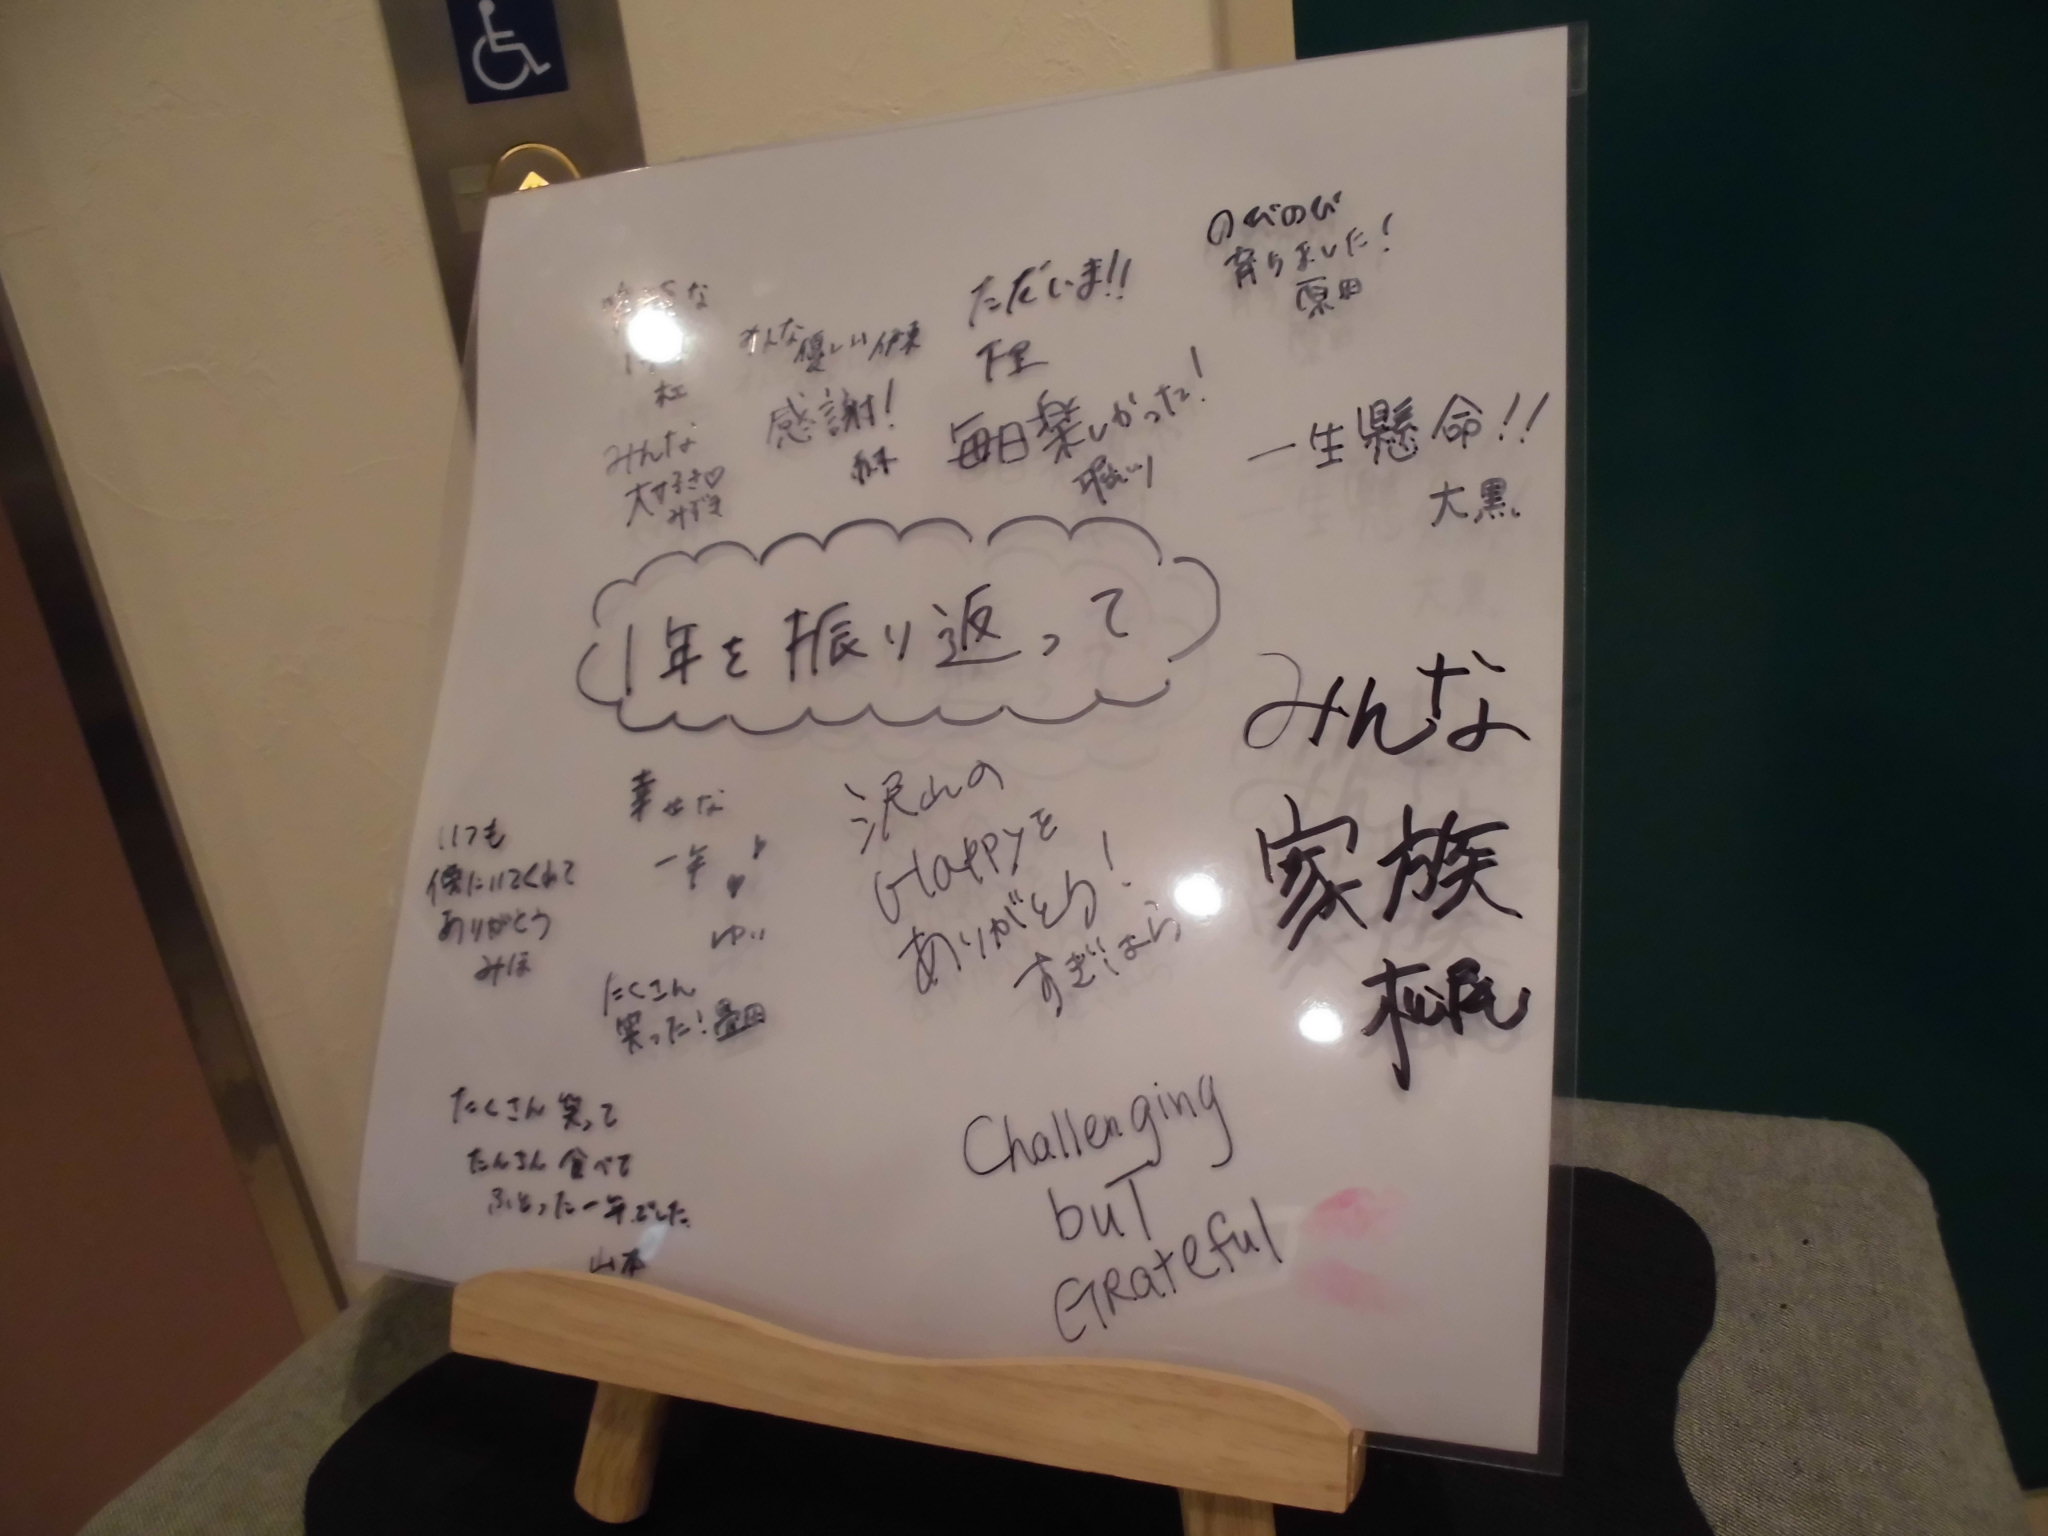 のびのび
育ちました!
原田
ただいま!!
下里
みんな
優しい 伊東
感謝!
毎日楽しかった!
一生懸命!!
大黒
みんな
大好き♡
みずき
1年を振り返って
みんな
家族
幸せな
一年♪
♥
ゆい
いつも
傍にいてくれて
ありがとう
みほ
沢山の
Happyを
ありがとう!
すぎはら
たくさん
笑った! 豊田
たくさん 笑って
たくさん 食べて
ふとった一年でした
山本
Challenging
but
Grateful